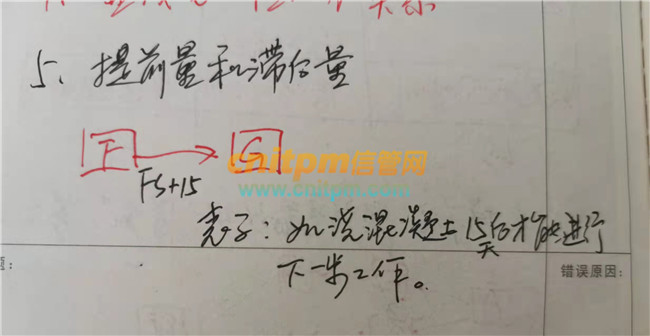 5、提前量和滞后量
F
G
FS+15
cnitpm信管网
www.cnitpm.com
表示：如浇混凝土15天后才能进行
下一步工作。
错误原因：